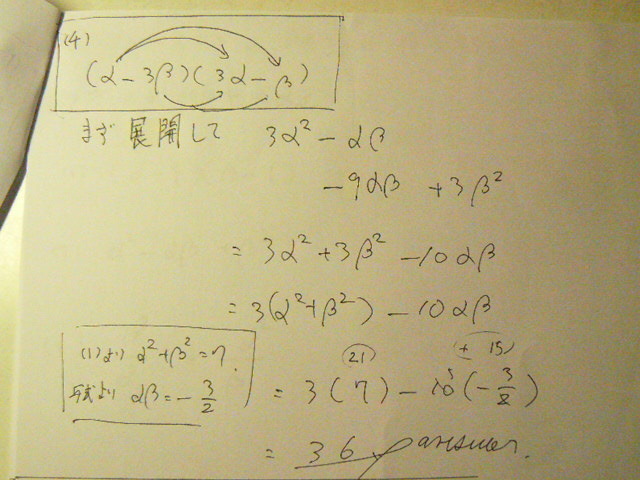 (4)
(α-3β)(3α-β)
まず 展開して 3α²-αβ
-9αβ +3β²
=3α²+3β²-10αβ
=3(α²+β²)-10αβ
(1)より α²+β²=7.
与式より αβ=-3/2
21 + 15
=3(7)-10⁵(-3/2)
=36 answer.